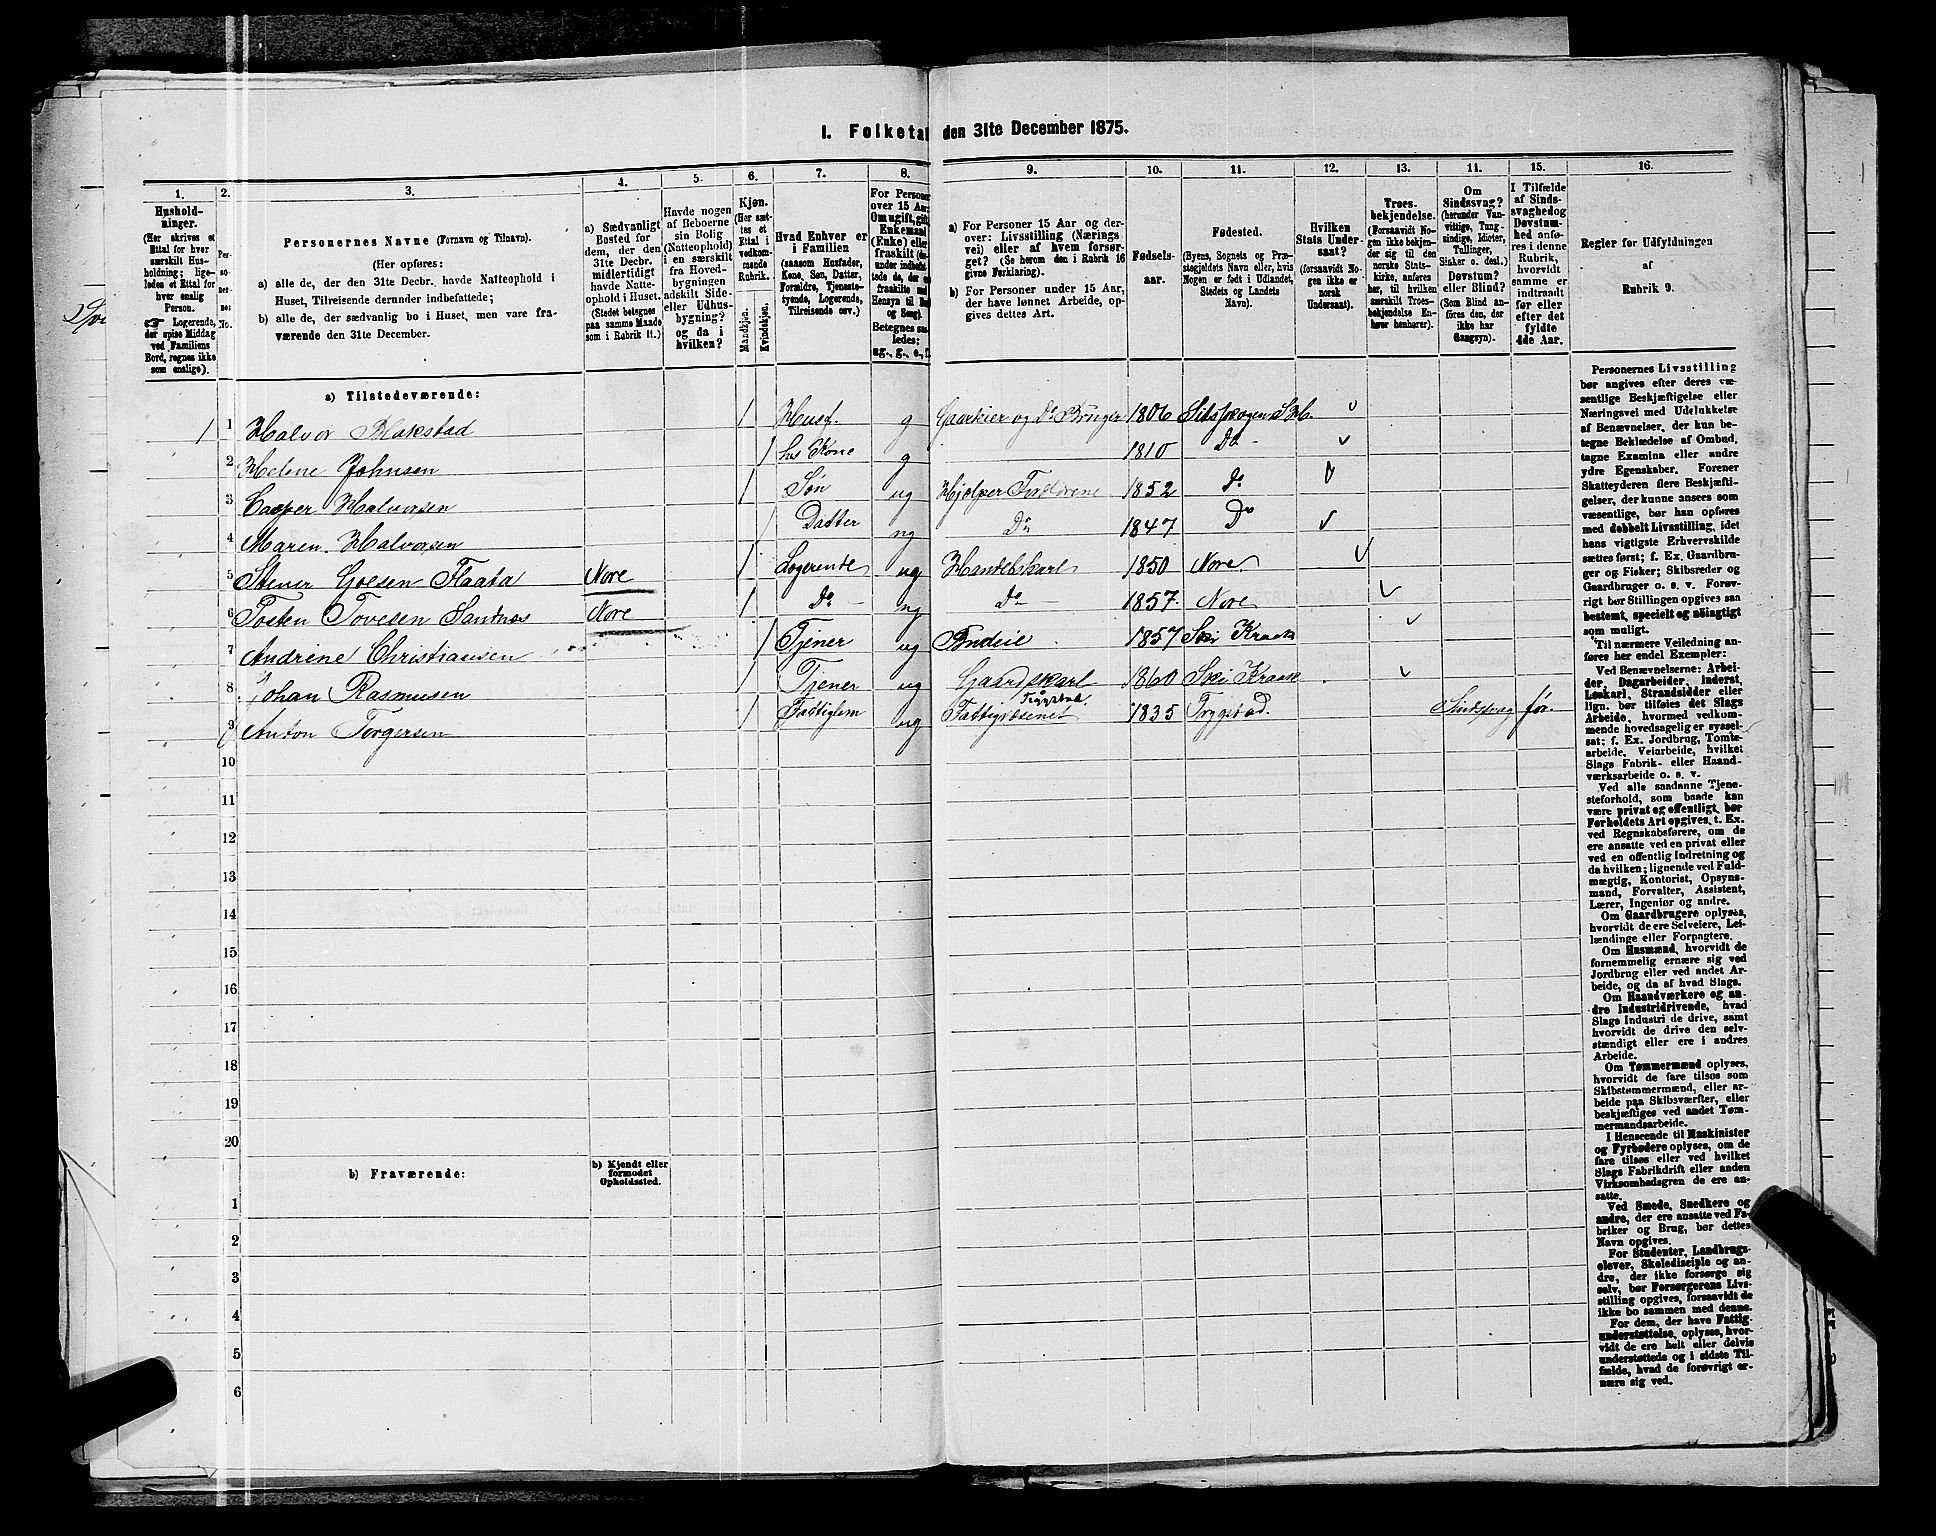 I. Folketal den 31te December 1875.
1. 2. 3. 4. 5. 6. 7. 8. 9. 10. 11. 12. 13. 14. 15. 16.
Husholdninger.
(Her skrives et Ettal for hver særskilt Husholdning; ligeledes et Ettal for hver enslig Person.
☞ Logerende, der spise Middag ved Familiens Bord, regnes ikke som enslige).
Personernes No.
Personernes Navne (Fornavn og Tilnavn).
(Her opføres:
a) alle de, der den 31te Decbr. havde Natteophold i Huset, Tilreisende derunder indbefattede;
b) alle de, der sædvanlig bo i Huset, men vare fraværende den 31te December.
a) Sædvanligt Bosted for dem, der den 31te Decbr. midlertidigt havde Natteophold i Huset. (Stedet betegnes paa samme Maade som i Rubrik 11.)
Havde nogen af Beboerne sin Bolig (Natteophold) i en særskilt fra Hovedbygningen adskilt Side- eller Udhusbygning? og da i hvilken?
Kjøn.
(Her sættes et Ettal i vedkommende Rubrik.
Mandkjøn.
Kvindekjøn.
Hvad Enhver er i Familien
(saasom Husfader, Kone, Søn, Datter, Forældre, Tjenestetyende, Logerende, Tilreisende osv.)
For Personer over 15 Aar: Om ugift, gift, Enkemand (Enke) eller fraskilt
Betegnes saaledes: ug., g., e., f.
a) For Personer 15 Aar og derover: Livsstilling (Næringsvei) eller af hvem forsørget? (Se herom den i Rubrik 16 givne Forklaring).
b) For Personer under 15 Aar, der have lønnet Arbeide, opgives dettes Art.
Fødselsaar.
Fødested.
(Byens, Sognets og Præstegjeldets Navn eller, hvis Nogen er født i Udlandet, Stedets og Landets Navn).
Hvilken Stats Undersaat?
(forsaavidt Nogen ikke er norsk Undersaat).
Troesbekjendelse.
(Forsaavidt Nogen ikke bekjender sig til den norske Statskirke, anføres her, til hvilken særskilt Troesbekjendelse Enhver henhører).
Om Sindssvag? (herunder Vanvittige, Tungsindige, Idioter, Tullinger, Sinker o. desl.) Døvstum? eller Blind? (Som Blind anføres den, der ikke har Gangsyn).
I Tilfælde af Sindssvaghed og Døvstumhed anføres i denne Rubrik, hvorvidt samme er indtraadt før eller efter det fyldte 4de Aar.
Regler for Udfyldningen af Rubrik 9.
a) Tilstedeværende:
1 1 Halvor Blakstad 1 Husf. g Gaardeier og Do Bruger 1806 Sitskogen S.H.
2 Helene Johnsen 1 hs Kone g 1810 Do
3 Casper Halvorsen 1 Søn ug Hjelper Forældrene 1852 Do
4 Maren Halvorsen 1 Datter ug Do 1847 Do
5 Stener Goesen Flaata Nore 1 Logerende ug Handelskarl 1850 Nore
6 Tosten Tovesen Sandnes Nore 1 Do ug Do 1857 Nore
7 Andrine Christiansen 1 Tjener ug Budeie 1857 Ski Kraak
8 Johan Rasmusen 1 Tjener ug Gaardskarl 1860 Ski Kraak
9 Anton Torgersen 1 Fattiglem ug Fattigvæsenet Trygstad 1835 Trygstad. Sindsvag før.
10
11
12
13
14
15
16
17
18
19
20
b) Fraværende:
b) Kjendt eller formodet Opholdssted.
1
2
3
4
5
6
Personernes Livsstilling
bør angives efter deres væ-
sentlige Beskjæftigelse eller
Næringsvei med Udelukkelse
af Benævnelser, der kun be-
tegne Beklædelse af Ombud,
tagne Examina eller andre
ydre Egenskaber. Forener
Skatteyderen flere Beskjæfti-
gelser, der kunne ansees som
væsentlige, bør han opføres
med dobbelt Livsstilling, idet
hans vigtigste Erhvervskilde
sættes først; f. Ex. Gaardbru-
ger og Fisker; Skibsreder og
Gaardbruger o. s. v. Forøv-
rigt bør Stillingen opgives saa
bestemt, specielt og nøiagtigt
som muligt.
Til nærmere Veiledning an-
føres her endel Exempler:
Ved Benævnelserne: Arbei-
der, Dagarbeider, Inderst,
Løskarl, Strandsidder eller
lign. bør tilføies det Slags
Arbeide, hvormed vedkom-
mende hovedsagelig er syssel-
sat; f. Ex. Jordbrug, Tomte-
arbeide, Veiarbeide, hvilket
Slags Fabrik- eller Haand-
værksarbeide o. s. v.
Ved alle saadanne Tjene-
steforhold, som baade kan
være privat og offentligt, bør
Forholdets Art opgives, t. Ex.
ved Regnskabsførere, om de
ere ansatte ved en privat eller
ved en offentlig Indretning og
da hvilken; lignende ved Fuld-
mægtig, Kontorist, Opsyns-
mand, Forvalter, Assistent,
Lærer, Ingeniør og andre.
Om Gaardbrugere oplyses,
hvorvidt de ere Selveiere, Lei-
lændinge eller Forpagtere.
Om Husmænd, hvorvidt de
fornemmelig ernære sig ved
Jordbrug eller ved andet Ar-
beide, og da af hvad Slags.
Om Haandværkere og an-
dre Industridrivende, hvad
Slags Industri de drive, samt
hvorvidt de drive den selv-
stændigt eller ere i andres
Arbeide.
Om Tømmermænd oplyses,
hvorvidt de fare tilsøs som
Skibstømmermænd, eller ar-
beide paa Skibsværfter, eller
beskjæftiges ved andet Tøm-
mermandsarbeide.
I Henseende til Maskinister
og Fyrbødere oplyses, om de
fare tilsøs eller ved hvilket
Slags Fabrikdrift eller anden
Virksomhedsgren de ere an-
satte.
Ved Smede, Snedkere og
andre, der ere ansatte ved Fa-
briker og Brug, bør dettes
Navn opgives.
For Studenter, Landbrugs-
elever, Skoledisciple og an-
dre, der ikke forsørge sig
selv, bør Forsørgerens Livs-
stilling opgives, forsaavidt de
ikke bo sammen med denne.
For dem, der have Fattig-
understøttelse, oplyses, hvor-
vidt de ere helt eller delvis
understøttede og i sidste Til-
fælde, hvad de forøvrigt er-
nære sig ved.